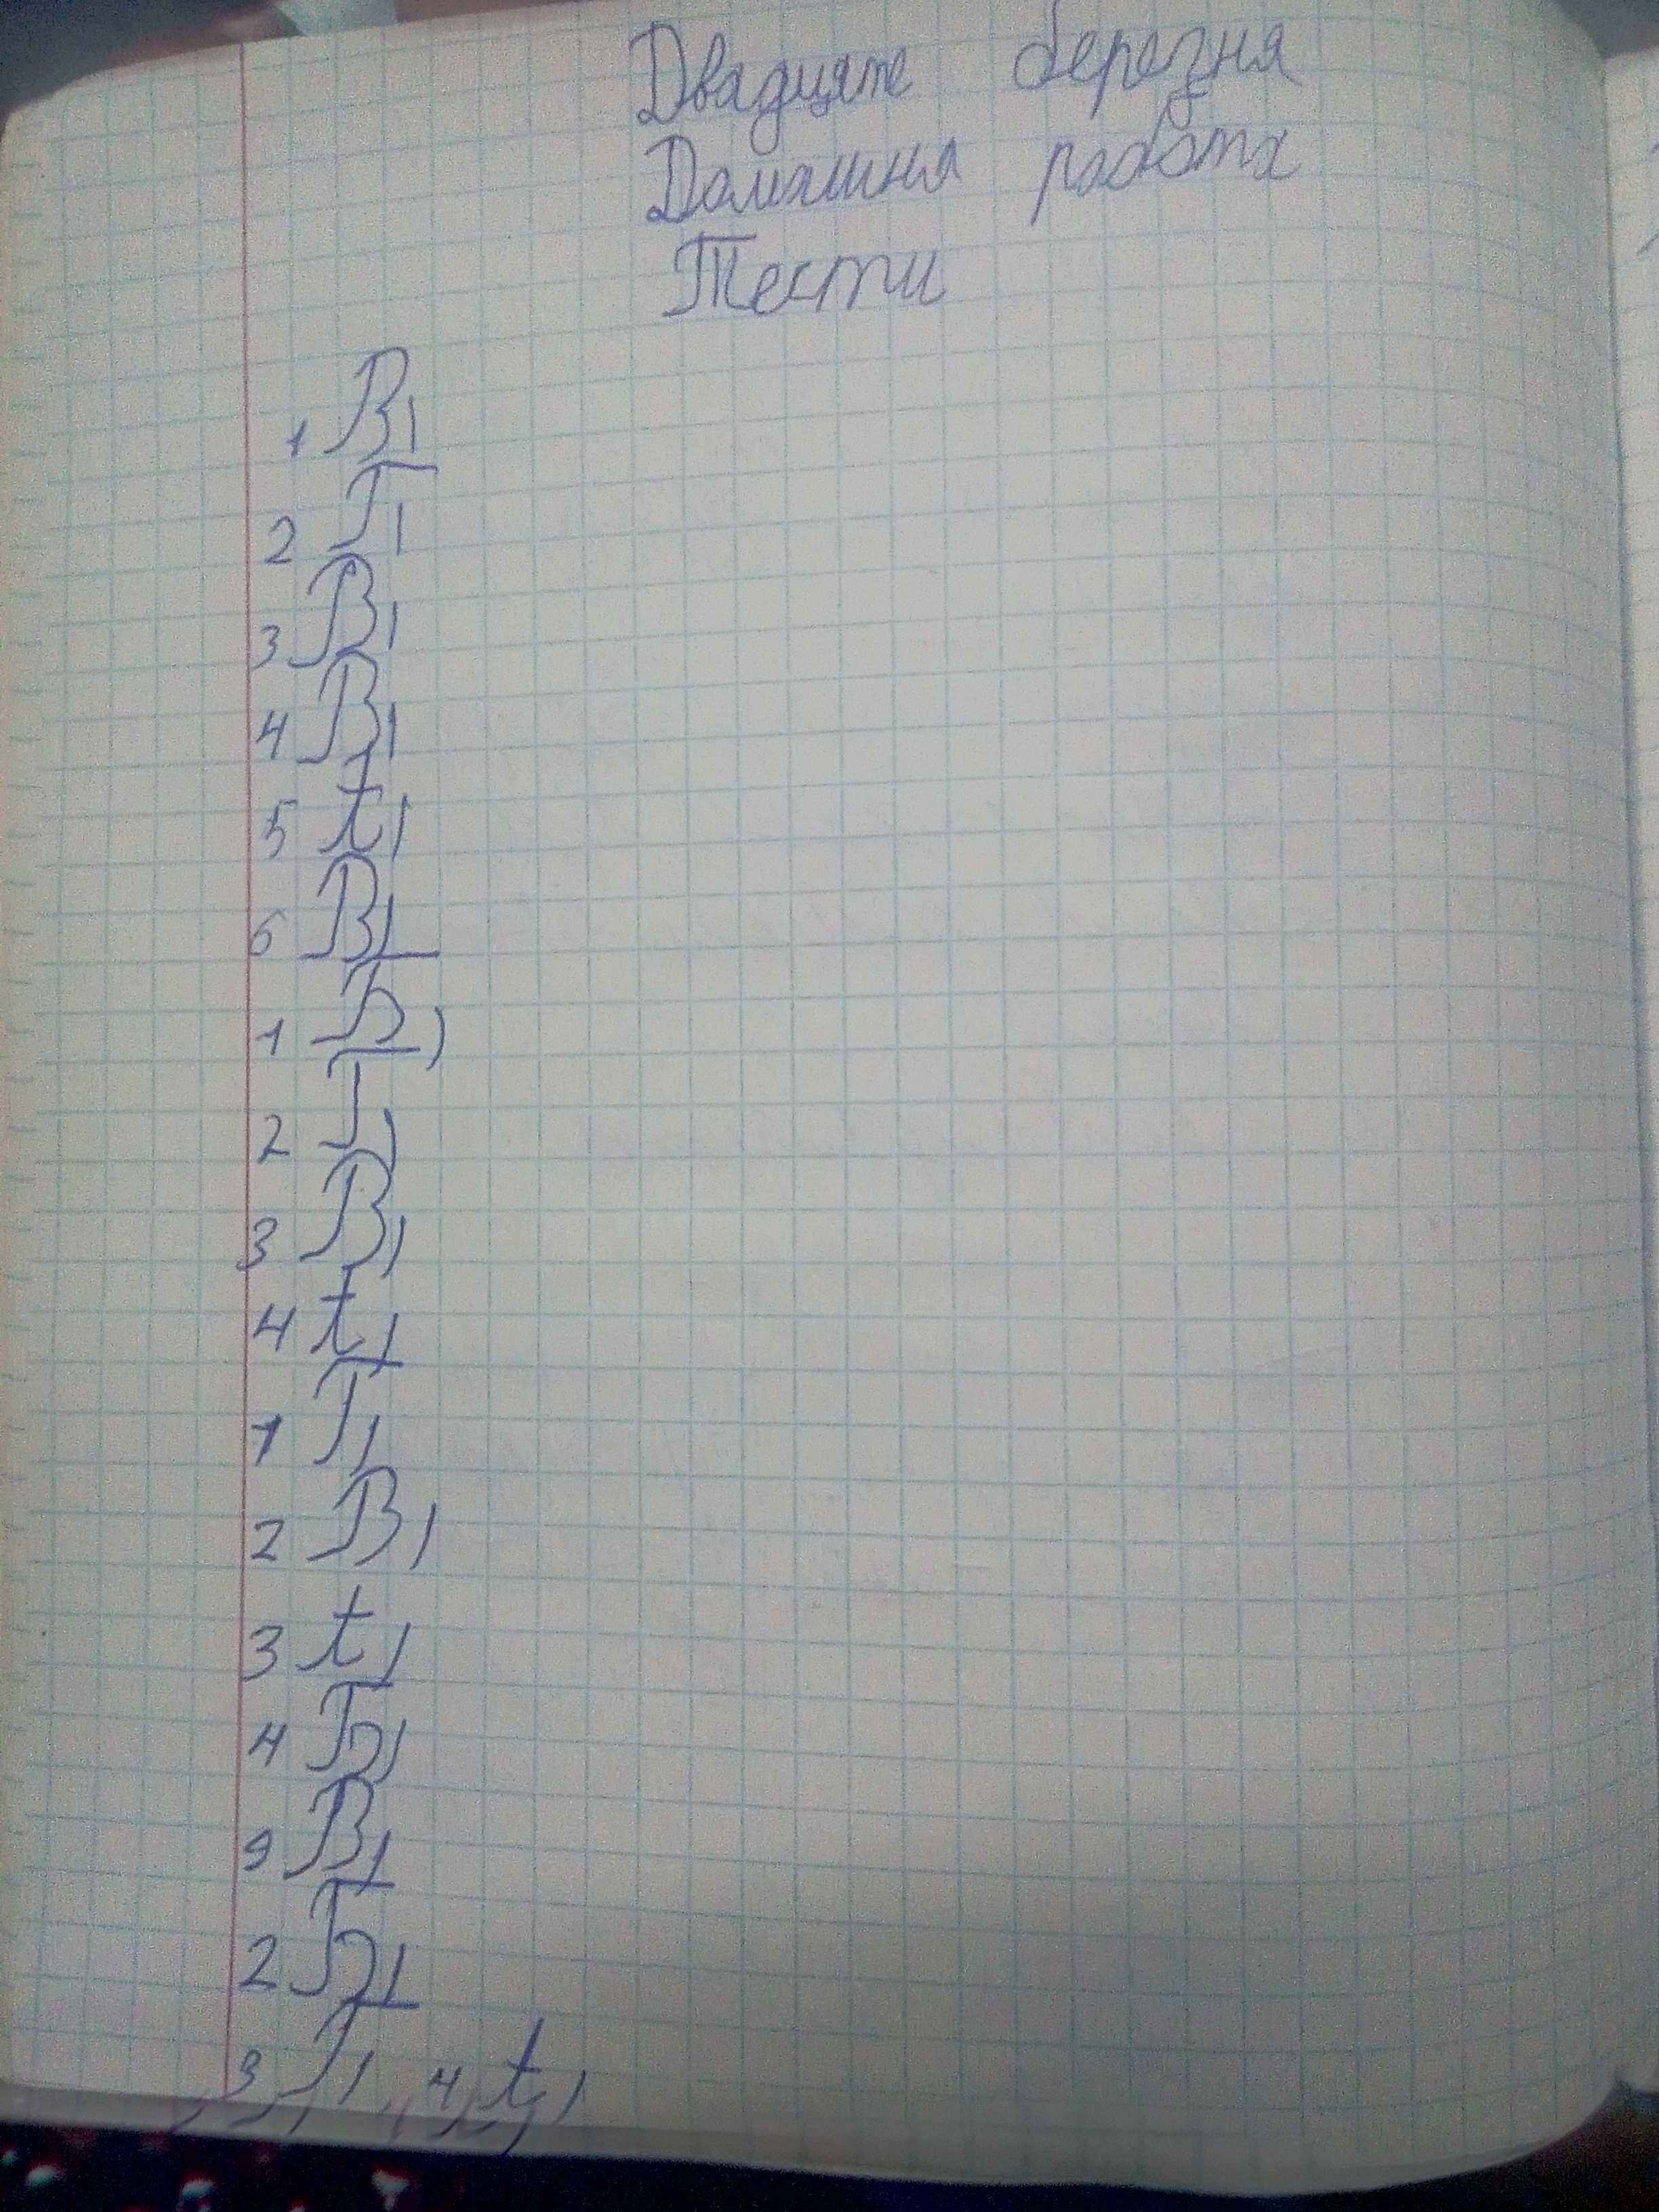 Двадцяте березня
Домашня работа
Тести
1 В)
2 Г)
3 В)
4 В)
5 t)
6 В)
1 Б)
2 Г)
3 В)
4 t)
1 Г)
2 В)
3 t)
4 Б)
1 В)
2 Б)
3 Г) 4 t)